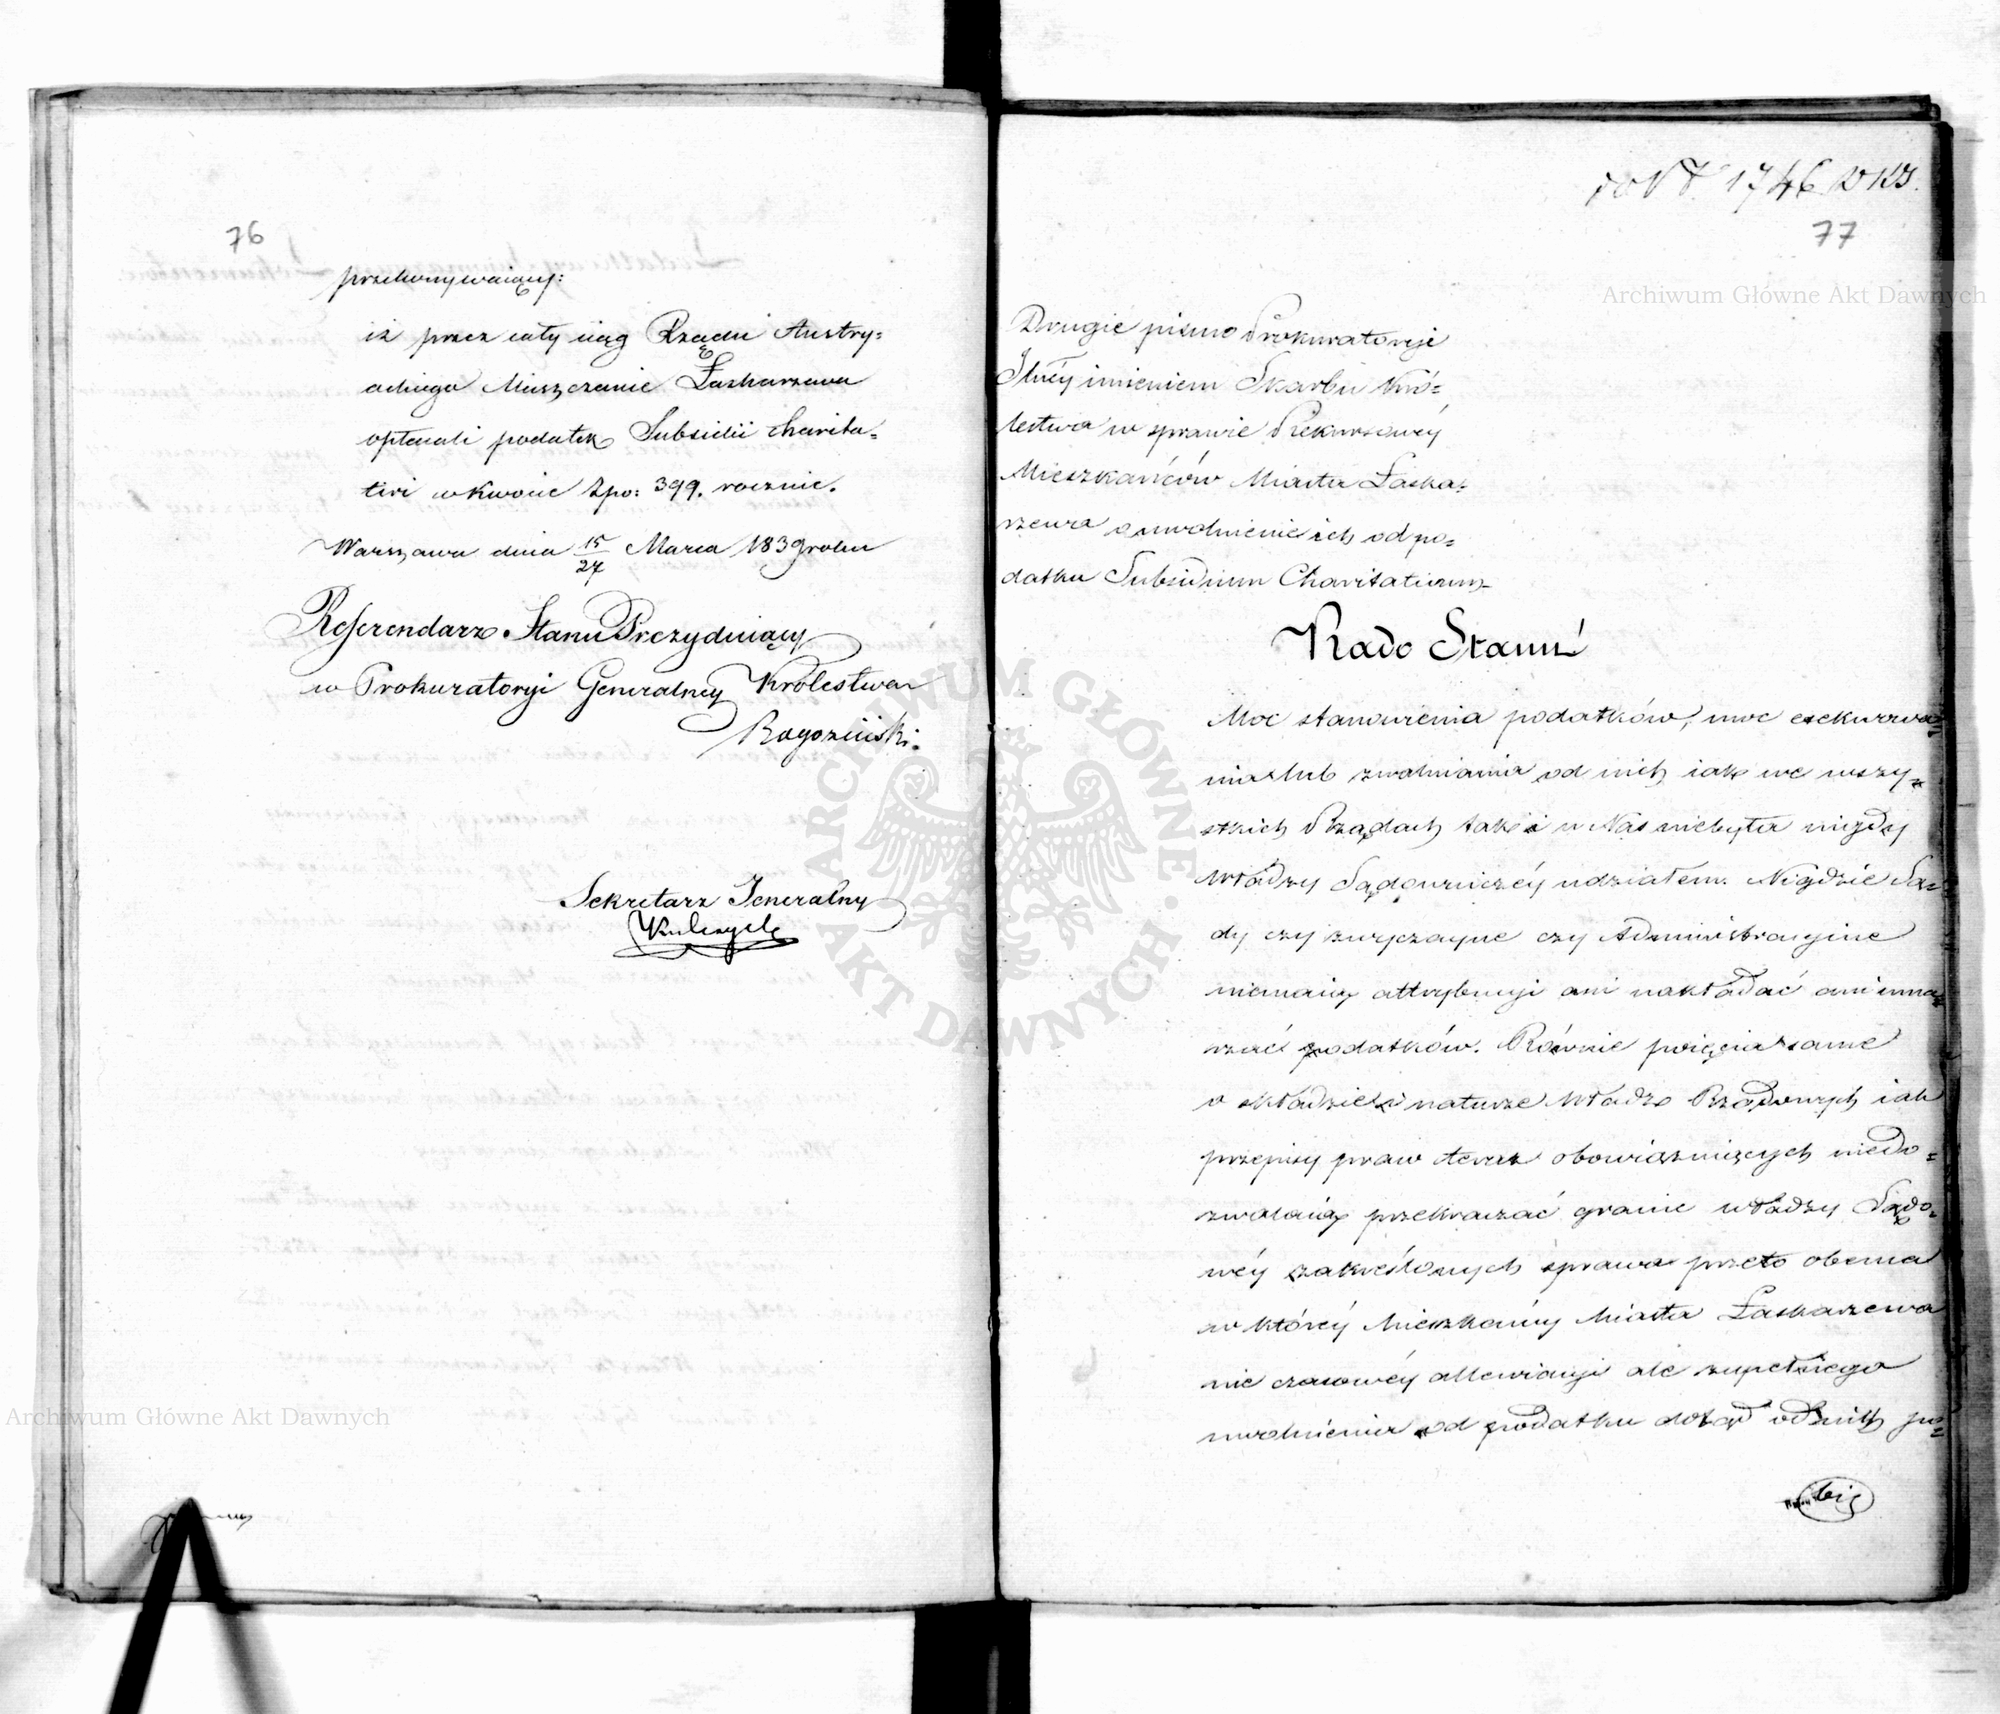 76
przekonywaiący:
iż przez cały ciąg Rządu Austry=
ackiego Mieszczanie Łaskarzewa
opłacali podatek Subsidii Charita=
tivi w kwocie Złpo: 399. rocznie.
Warszawa dnia 15/27 Marca 1839 roku
Referendarz Stanu Prezyduiący
w Prokuratoryi Generalney Królestwa
Rogoziński.
Sekretarz Jeneralny
do N 1746
77
Drugie pismo Prokuratoryi
imieniem Skarbu Kró=
lestwa w sprawie Rekursowéy
Mieszkańców Miasta Łaska=
rzewa o uwolnienie ich od po=
datku Subsidium Charitativum
Rado Stanu
Moc stanowienia podatków, moc exekwowa=
nia lub zwalniania od nich iak we wszy=
stkich Rządach tak i u Nas niebyła nigdy
Władzy Sądowniczéy udziałem. Nigdzie Są=
dy czy zwyczayne czy Administracyine
niemaią attrybucyi ani nakładać ani uma=
rzać podatków. Równie poięcia same
o składzie i naturze Władz Rządowych iak
przepisy praw teraz obowiązuiących niedo=
zwalaią przekraczać granic władzy Sądo=
wéy zakreślonych sprawa przeto obecna
w któréy Mieszkańcy Miasta Łaskarzewa
nie czasowéy allewiacyi ale zupełnego
uwolnienia od podatku dotąd od nich po=
Archiwum Główne Akt Dawnych
Archiwum Główne Akt Dawnych
ARCHIWUM GŁÓWNE AKT DAWNYCH